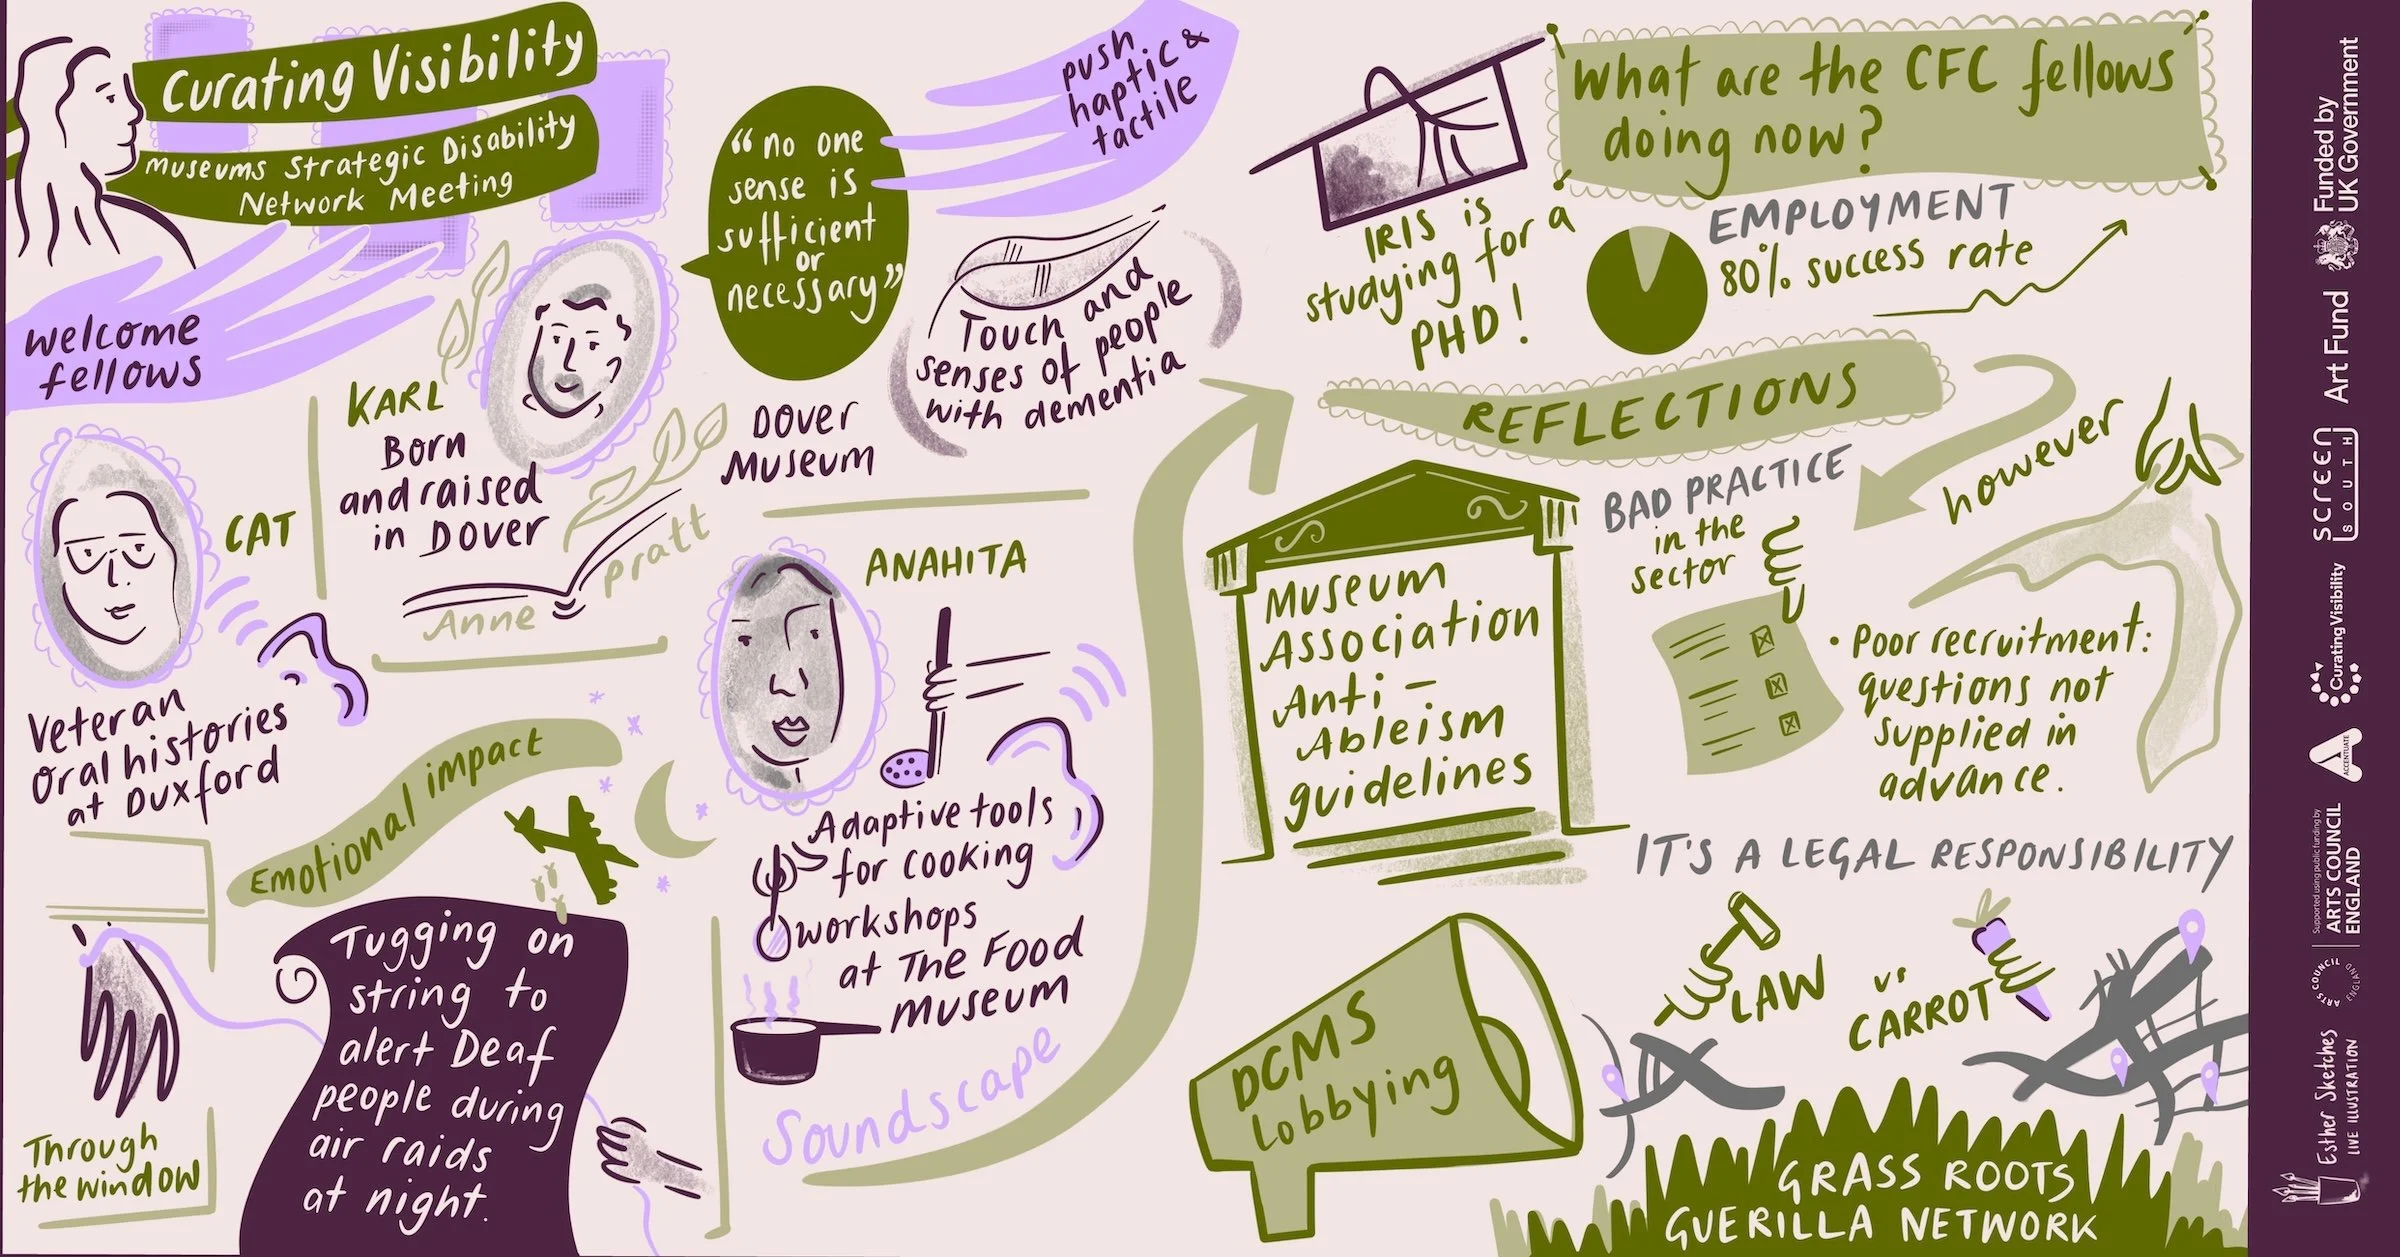 Curating Visibility
Museums Strategic Disability
Network Meeting
welcome
fellows
CAT
Veteran
oral histories
at Duxford
KARL
Born
and raised
in Dover
Anne
pratt
"no one
sense is
sufficient
or
necessary"
push
haptic &
tactile
Touch and
senses of people
with dementia
DOVER
MUSEUM
Emotional impact
Tugging on
string to
alert Deaf
people during
air raids
at night.
Through
the window
ANAHITA
Adaptive tools
for cooking
workshops
at The Food
Museum
Soundscape
What are the CFC fellows
doing now?
IRIS is
studying for a
PHD!
EMPLOYMENT
80% success rate
REFLECTIONS
Museum
Association
Anti-
Ableism
guidelines
BAD PRACTICE
in the
sector
however
• Poor recruitment:
questions not
supplied in
advance.
IT'S A LEGAL RESPONSIBILITY
LAW
vs
CARROT
DCMS
Lobbying
GRASS ROOTS
GUERILLA NETWORK
Funded by
UK Government
Art Fund
SCREEN
SOUTH
Curating Visibility
ACCENTUATE
Supported using public funding by
ARTS COUNCIL
ENGLAND
ARTS COUNCIL ENGLAND
Esther Sketches
LIVE ILLUSTRATION